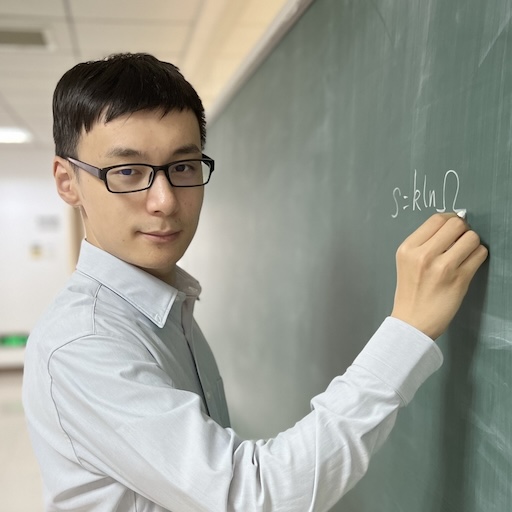 S=klnΩ